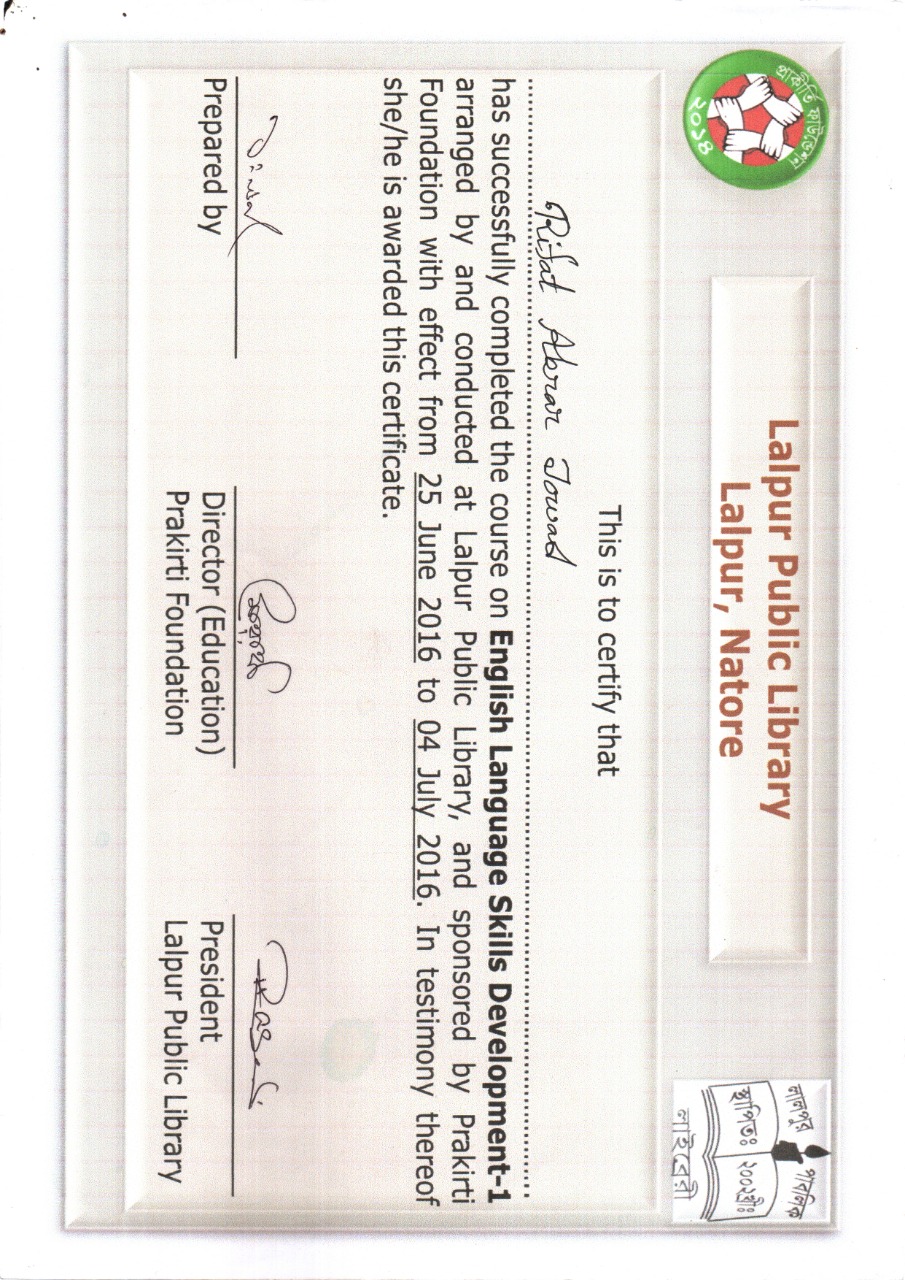 প্রাকীর্তি ফাউন্ডেশন
২০১৪
Lalpur Public Library
Lalpur, Natore
লালপুর পাবলিক
স্থাপিতঃ ২০০২খ্রীঃ
লাইব্রেরী
This is to certify that
Rifat Abrar Jowad
has successfully completed the course on English Language Skills Development-1
arranged by and conducted at Lalpur Public Library, and sponsored by Prakirti
Foundation with effect from 25 June 2016 to 04 July 2016. In testimony thereof
she/he is awarded this certificate.
Prepared by
Director (Education)
Prakirti Foundation
President
Lalpur Public Library